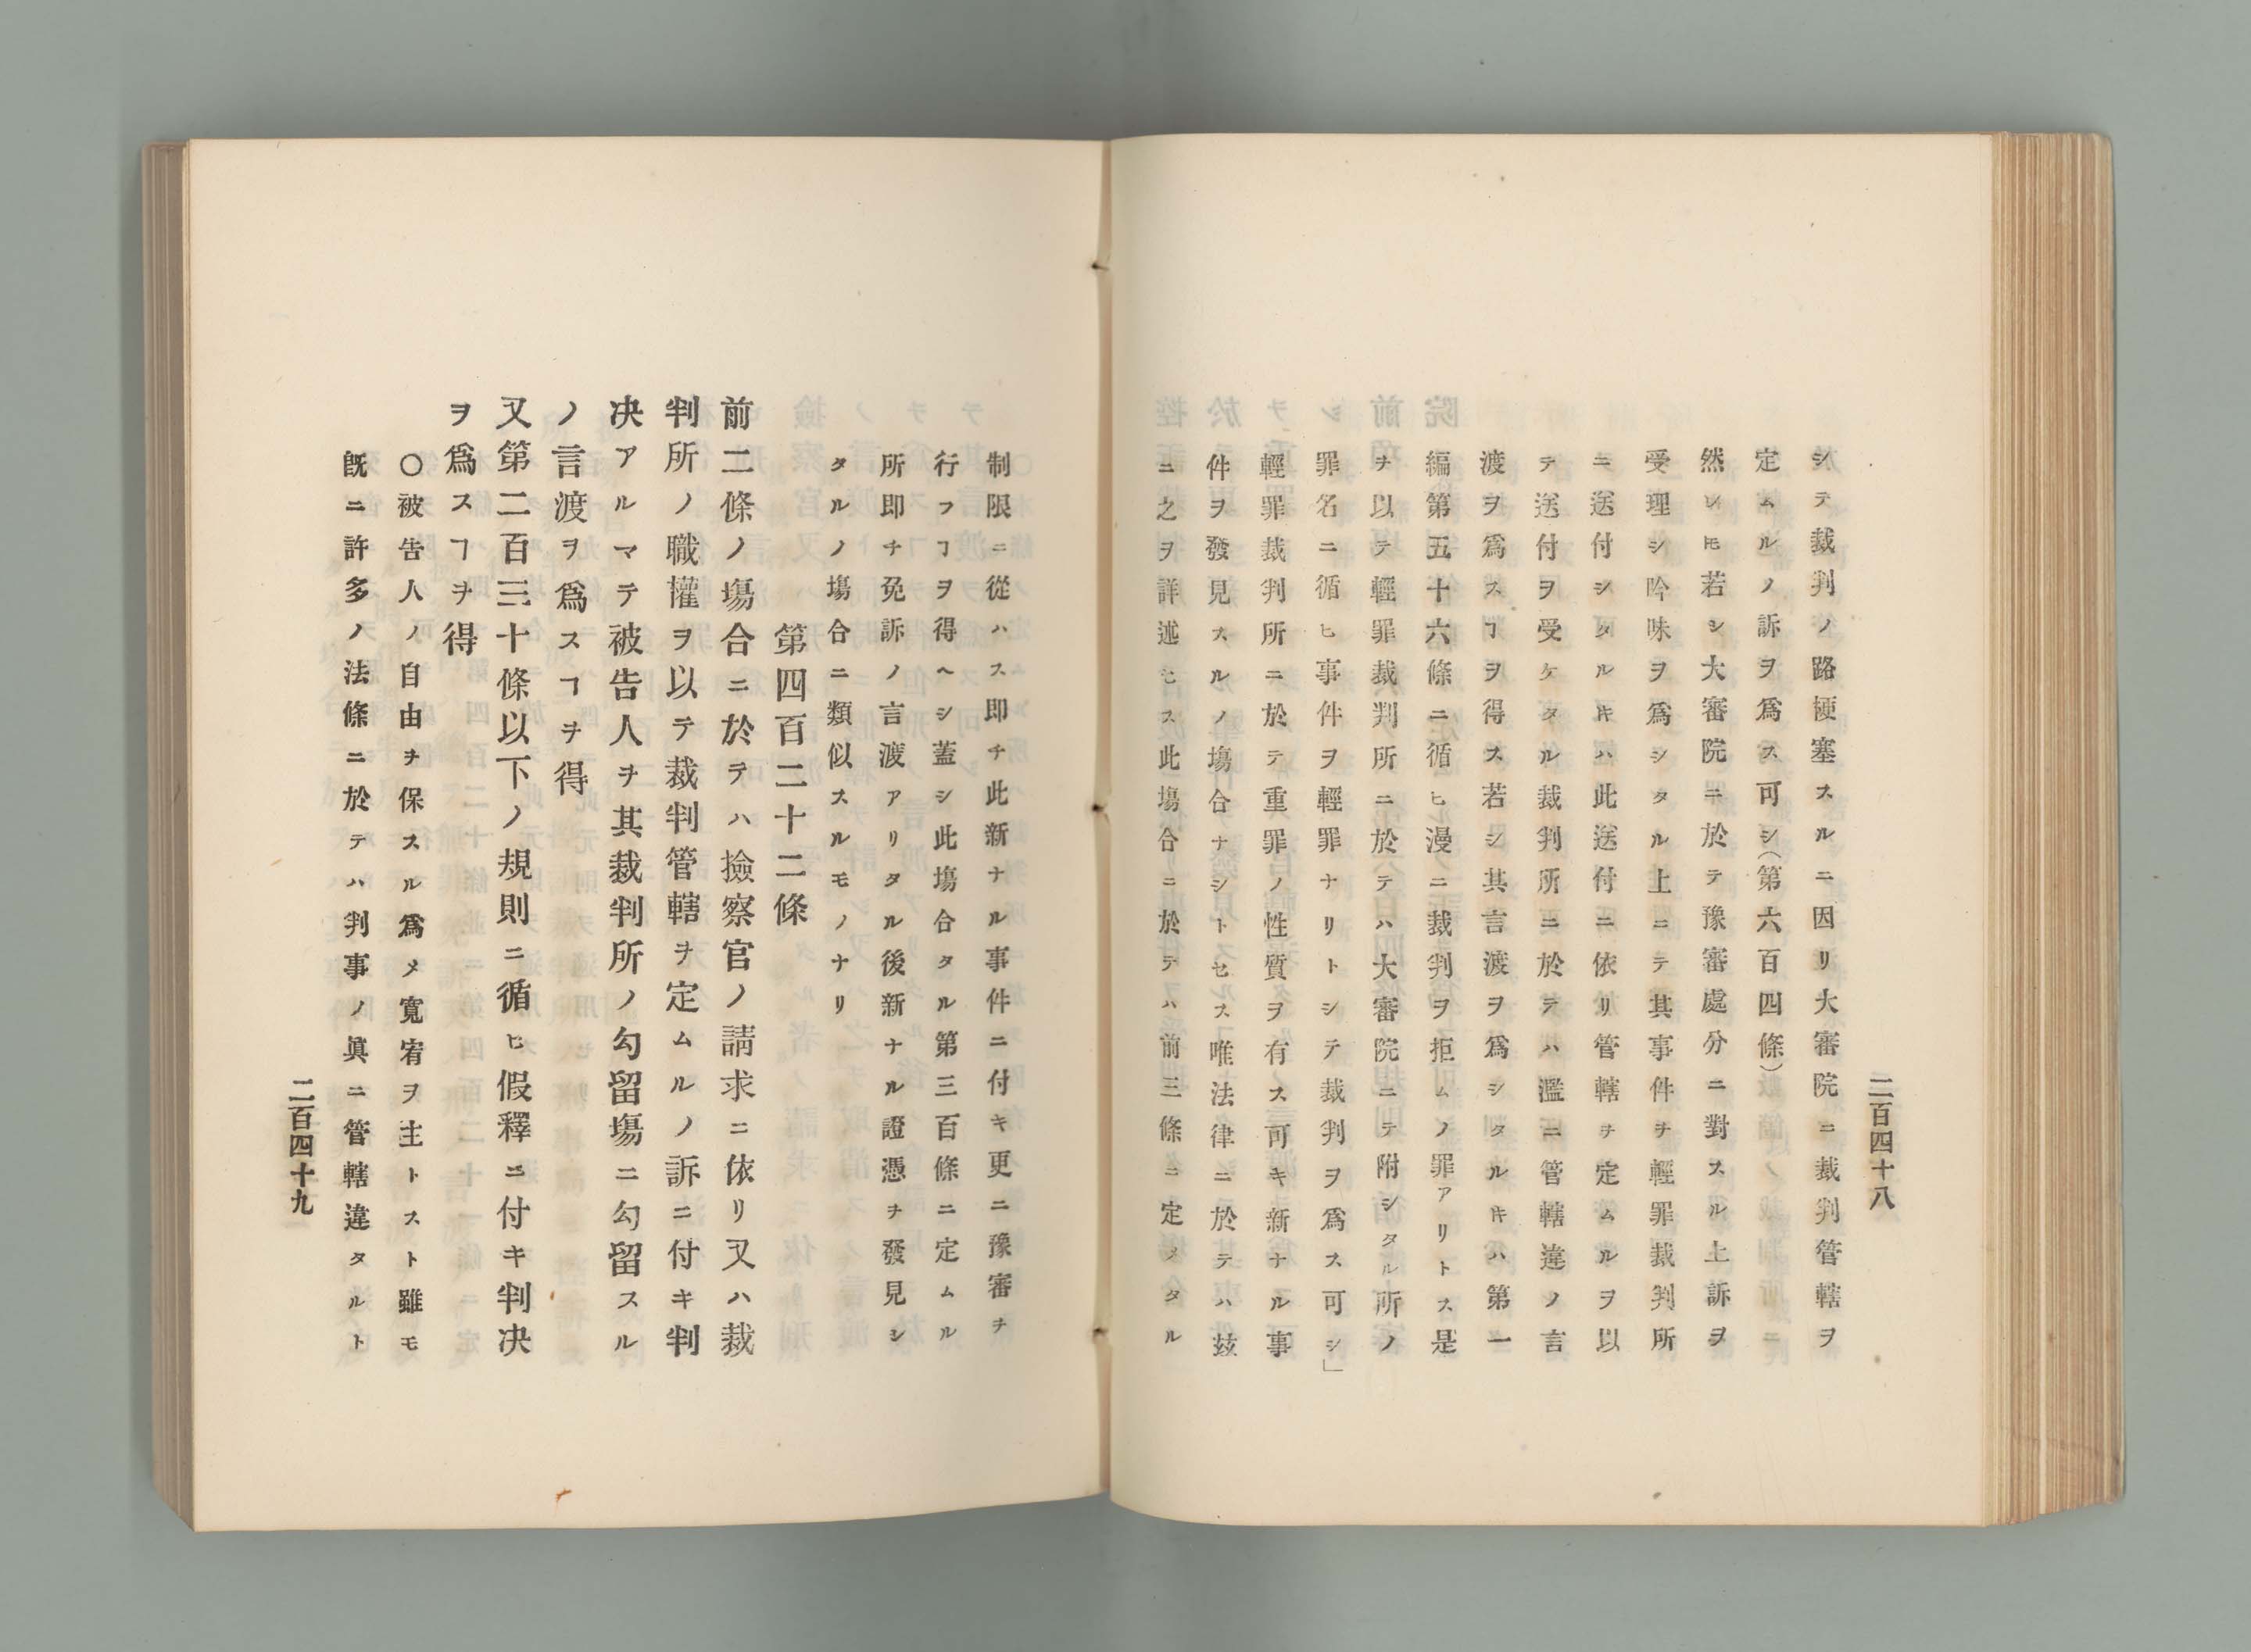 二百四十八
シテ裁判ノ路梗塞スルニ因リ大審院ニ裁判管轄ヲ
定ムルノ訴ヲ爲ス可シ（第六百四條）
然レㇳモ若シ大審院ニ於テ豫審處分ニ對スル上訴ヲ
受理シ吟味ヲ爲シタル上ニテ其事件ヲ輕罪裁判所
ニ送付シタルキハ此送付ニ依リ管轄ヲ定ムルヲ以
テ送付ヲ受ケタル裁判所ニ於テハ濫ニ管轄違ノ言
渡ヲ爲スヿヲ得ス若シ其言渡ヲ爲シタルキハ第一
編第五十六條ニ循ヒ漫ニ裁判ヲ拒ムノ罪アリトス是
ヲ以テ輕罪裁判所ニ於テハ大審院ニテ附シタル所ノ
罪名ニ循ヒ事件ヲ輕罪ナリトシテ裁判ヲ爲ス可シ」
輕罪裁判所ニ於テ重罪ノ性質ヲ有ス可キ新ナル事
件ヲ發見スルノ塲合ナシトセス唯法律ニ於テハ玆
ニ之ヲ詳述セス此塲合ニ於テハ前三條ニ定メタル
制限ニ從ハス即チ此新ナル事件ニ付キ更ニ豫審ヲ
行フヿヲ得ヘシ蓋シ此塲合タル第三百條ニ定ムル
所即チ免訴ノ言渡アリタル後新ナル證憑ヲ發見シ
タルノ塲合ニ類似スルモノナリ
第四百二十二條
前二條ノ塲合ニ於テハ撿察官ノ請求ニ依リ又ハ裁
判所ノ職權ヲ以テ裁判管轄ヲ定ムルノ訴ニ付キ判
决アルマテ被告人ヲ其裁判所ノ勾留塲ニ勾留スル
ノ言渡ヲ爲スヿヲ得
又第二百三十條以下ノ規則ニ循ヒ假釋ニ付キ判决
ヲ爲スヿヲ得
〇被告人ノ自由ヲ保スル爲メ寬宥ヲ主トスト雖モ
既ニ許多ノ法條ニ於テハ判事ノ眞ニ管轄違タルト
二百四十九